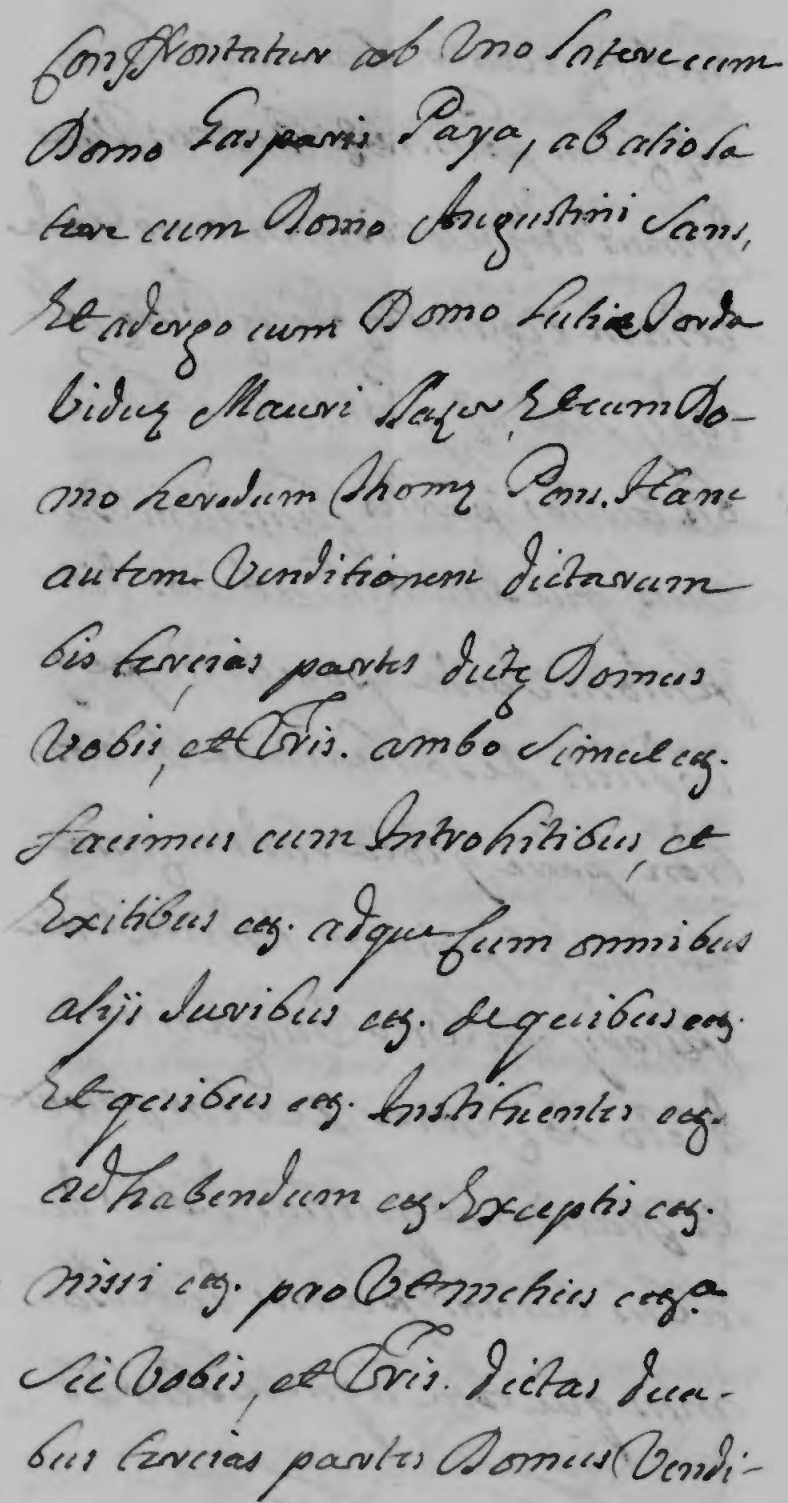 Conffrontatur ab Uno latere cum
Domo Gasparis Paya, ab alio la
tere cum Domo Augustini Sans,
Et adergo cum Domo Juliæ Jorda
Viduę Mauri Et cum Do-
mo heredum Thomę Pons. Hanc
autem Venditionem dictarum
bis tercias partes dictę Domus
Vobis, et Vris. ambo Simul etz.
facimus cum Introhitibus, et
Exitibus etz. adque Cum omnibus
alijs Juribus etz. de quibus etz.
Et quibus etz. Instituentes etz.
ad habendum etz Exceptis etz.
nissi etz. pro Vt melius etz.ª
Sic Vobis, et Vris. dictas dua-
bus tercias partes Domus Vendi-